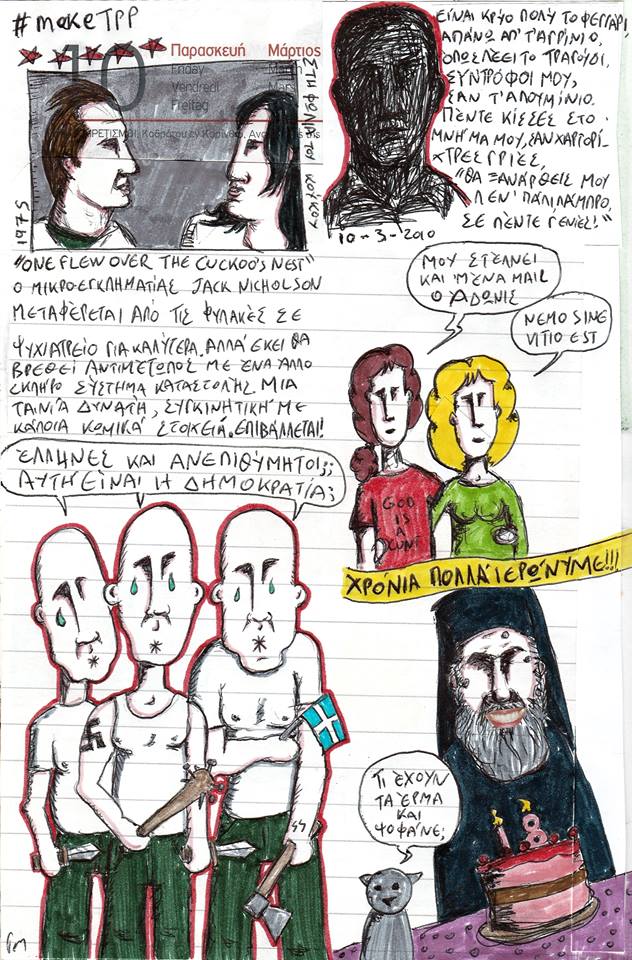 #makeTPP
10
Παρασκευή Μάρτιος
Friday
Vendredi
Freitag
ΣΤΗ ΦΩΛΙΑ ΤΟΥ ΚΟΥΚΟΥ
1975
"ONE FLEW OVER THE CUCKOO'S NEST"
Ο ΜΙΚΡΟ-ΕΓΚΛΗΜΑΤΙΑΣ JACK NICHOLSON
ΜΕΤΑΦΕΡΕΤΑΙ ΑΠΟ ΤΙΣ ΦΥΛΑΚΕΣ ΣΕ
ΨΥΧΙΑΤΡΕΙΟ ΓΙΑ ΚΑΛΥΤΕΡΑ. ΑΛΛΑ ΕΚΕΙ ΘΑ
ΒΡΕΘΕΙ ΑΝΤΙΜΕΤΩΠΟΣ ΜΕ ΕΝΑ ΑΛΛΟ
ΣΚΛΗΡΟ ΣΥΣΤΗΜΑ ΚΑΤΑΣΤΟΛΗΣ. ΜΙΑ
ΤΑΙΝΙΑ ΔΥΝΑΤΗ, ΣΥΓΚΙΝΗΤΙΚΗ ΜΕ
ΚΑΠΟΙΑ ΚΩΜΙΚΑ ΣΤΟΙΧΕΙΑ. ΕΠΙΒΑΛΛΕΤΑΙ!
ΕΙΝΑΙ ΚΡΥΟ ΠΟΛΥ ΤΟ ΦΕΓΓΑΡΙ,
ΑΠΑΝΩ ΑΠ' Τ' ΑΓΡΙΝΙΟ,
ΟΠΩΣ ΛΕΕΙ ΤΟ ΤΡΑΓΟΥΔΙ,
ΣΥΝΤΡΟΦΟΙ ΜΟΥ,
ΣΑΝ Τ' ΑΛΟΥΜΙΝΙΟ.
ΠΕΝΤΕ ΚΙΣΣΕΣ ΣΤΟ
ΜΝΗΜΑ ΜΟΥ, ΣΑΝ ΧΑΡΤΟΡΙ-
ΧΤΡΕΣ ΓΡΙΕΣ,
"ΘΑ ΞΑΝΑΡΘΕΙΣ ΜΟΥ
ΛΕΝ' ΠΑΛΙ ΛΑΜΠΡΟ,
ΣΕ ΠΕΝΤΕ ΓΕΝΙΕΣ!"
10-3-2010
ΜΟΥ ΣΤΕΛΝΕΙ
ΚΑΙ 'ΜΕΝΑ MAIL
Ο ΑΔΩΝΙΣ
NEMO SINE
VITIO EST
GOD
IS A
CUNT
ΕΛΛΗΝΕΣ ΚΑΙ ΑΝΕΠΙΘΥΜΗΤΟΙ;;
ΑΥΤΗ ΕΙΝΑΙ Η ΔΗΜΟΚΡΑΤΙΑ;
ΧΡΟΝΙΑ ΠΟΛΛΑ ΙΕΡΩΝΥΜΕ!!!
18
ΤΙ ΕΧΟΥΝ
ΤΑ ΕΡΜΑ
ΚΑΙ
ΨΟΦΑΝΕ;